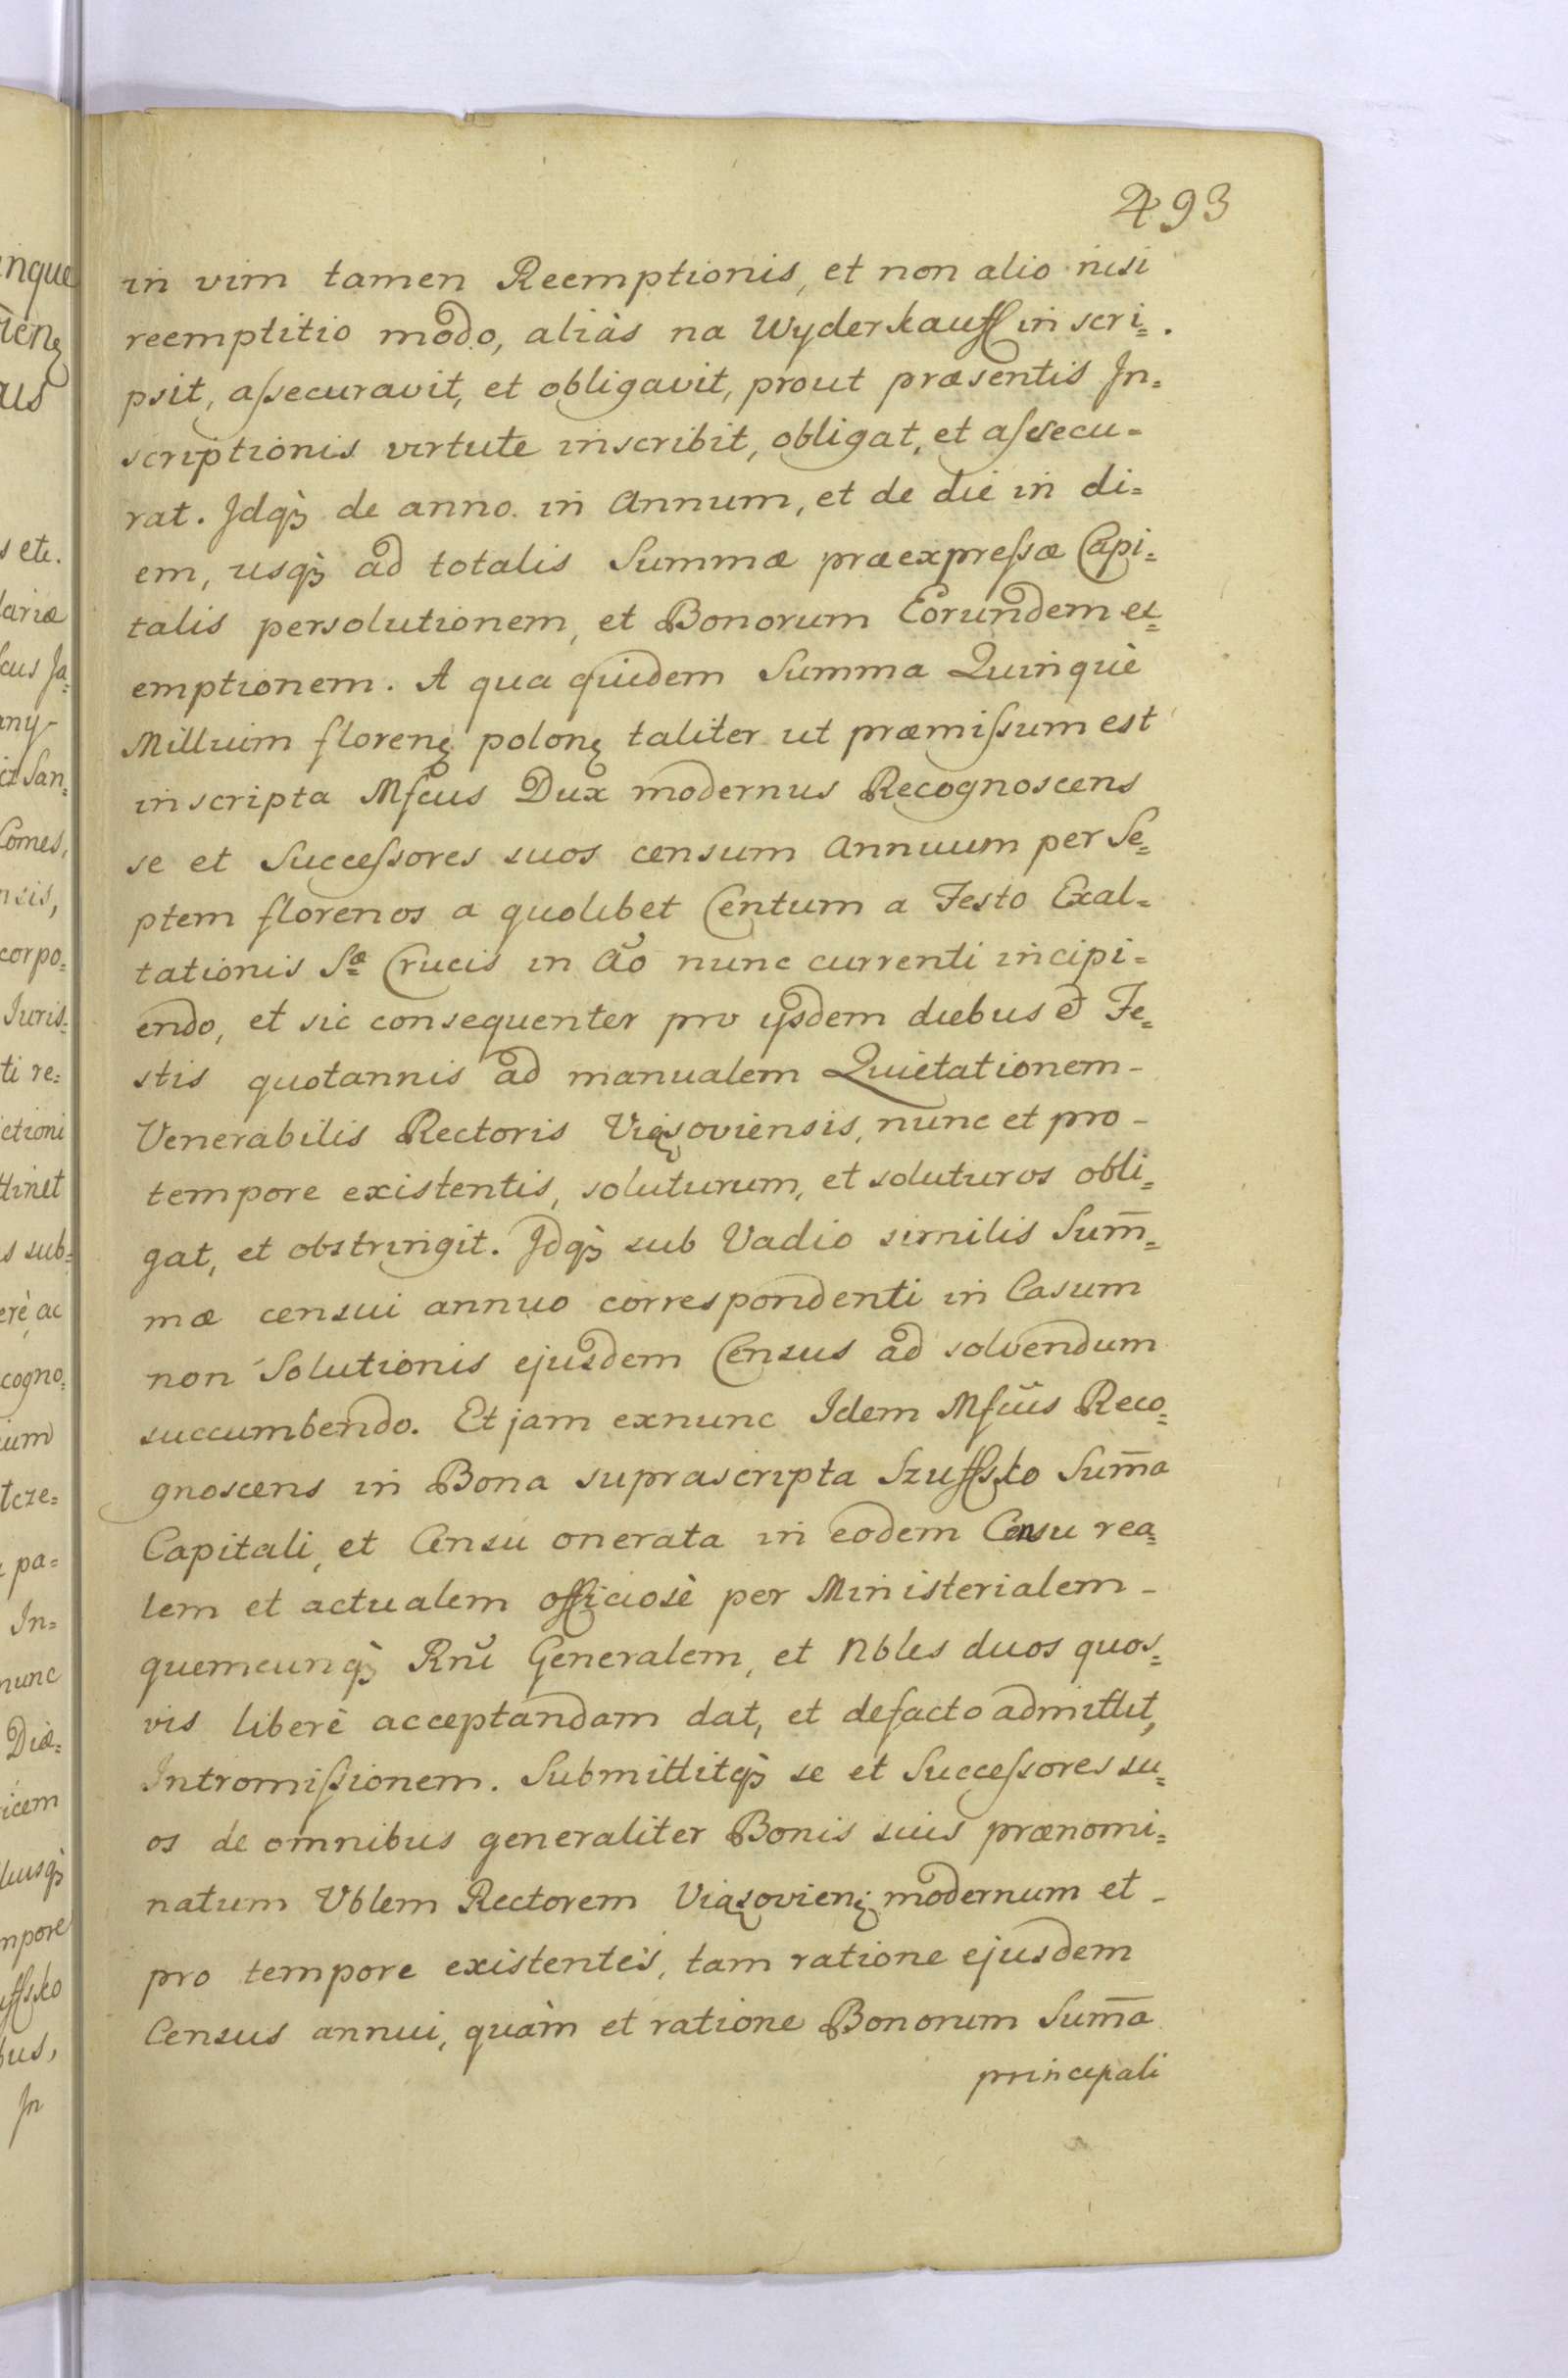 493
in vim tamen Reemptionis, et non alio nisi
reemptitio modo, aliàs na Wyderkauff inscri=
psit, assecuravit, et obligavit, prout præsentis In=
scriptionis virtute inscribit, obligat, et assecu=
rat. Idqȝ de anno in Annum, et de die in di=
em, usqȝ ad totalis Summæ præexpressæ Capi=
talis persolutionem, et Bonorum Eorundem ex=
emptionem. A qua quidem Summa Quinquè
Millium florenę polonę taliter ut præmissum est
inscripta Mfcus Dux modernus Recognoscens
se et Successores suos censum Annuum per Se=
ptem florenos a quolibet Centum a Festo Exal=
tationis Sæ Crucis in Aõ nunc currenti incipi=
endo, et sic consequenter pro ijsdem diebus et Fe=
stis quotannis ad manualem Quietationem-
Venerabilis Rectoris Viązoviensis, nunc et pro-
tempore existentis, soluturum, et soluturos obli=
gat, et obstringit. Idqȝ sub Vadio similis Sum̄=
mæ censui annuo correspondenti in Casum
non Solutionis ejusdem Census ad solvendum
succumbendo. Et jam exnunc Idem Mfcus Reco=
gnoscens in Bona suprascripta Szuffsko Sum̄a
Capitali, et Censu onerata in eodem Censu rea=
lem et actualem officiosè per Ministerialem-
quemcunqȝ Rnĩ Generalem, et Nbles duos quos=
vis liberè acceptandam dat, et defacto admittit,
Intromissionem. Submittitqȝ se et Successores su=
os de omnibus generaliter Bonis suis prænomi=
natum Vblem Rectorem Viązovienę modernum et-
pro tempore existentes, tam ratione ejusdem
Census annui, quàm et ratione Bonorum Sum̄a
principali